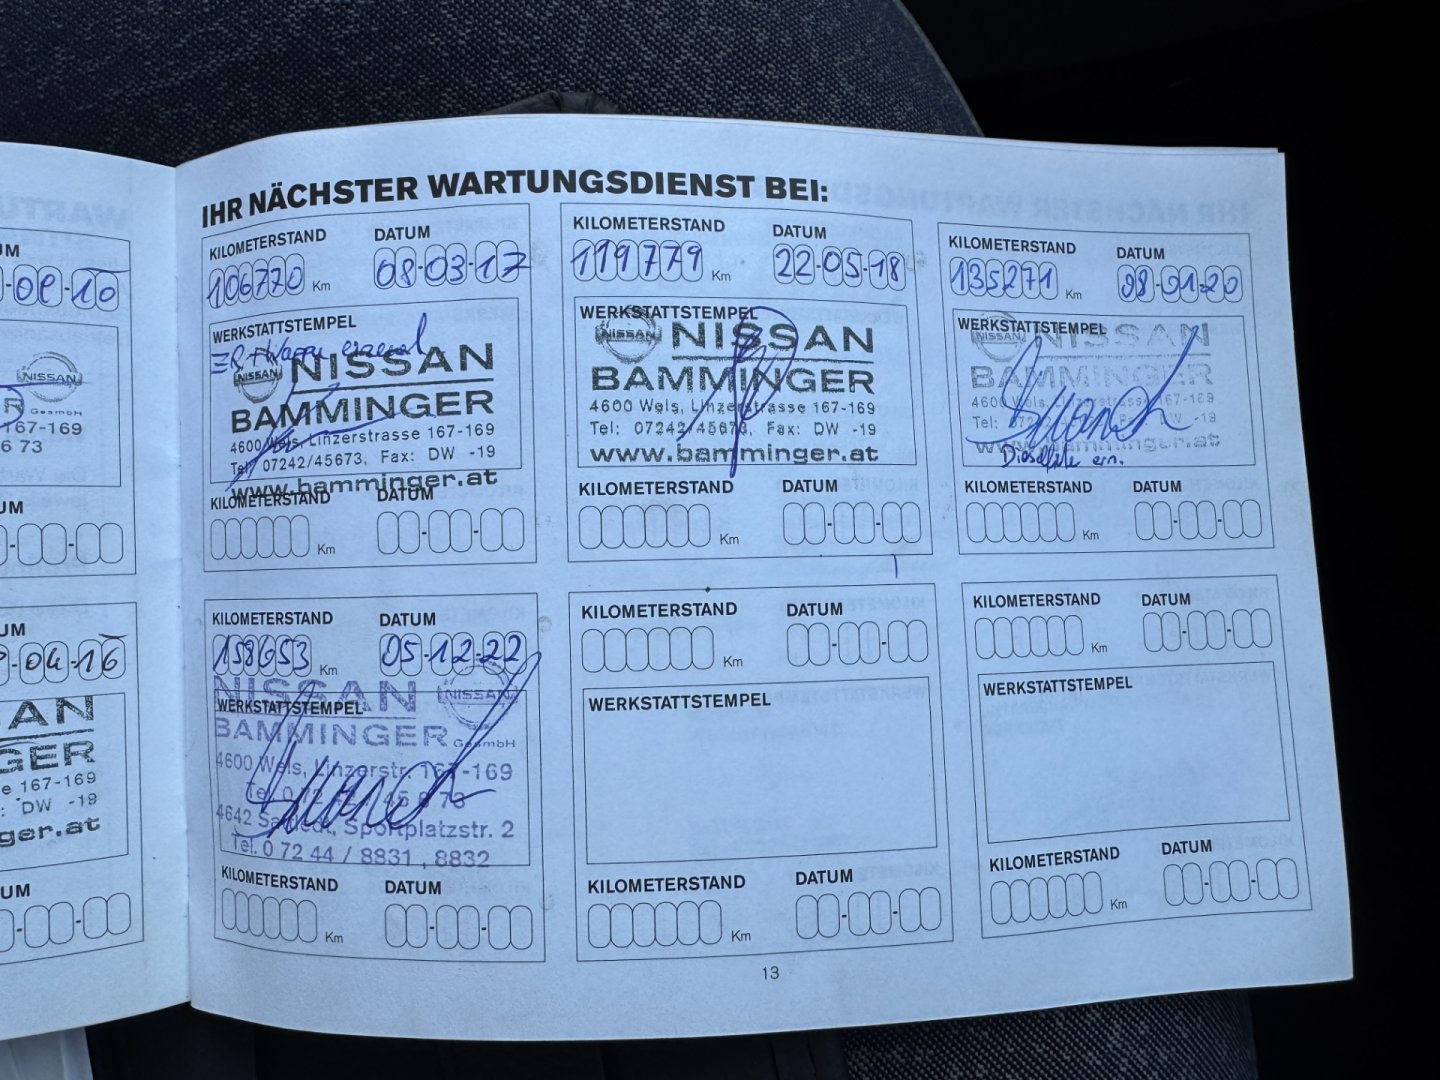 IHR NÄCHSTER WARTUNGSDIENST BEI:
KILOMETERSTAND DATUM
106770 Km 08-03-17
WERKSTATTSTEMPEL
ZR + Wapu erneuert
NISSAN NISSAN
BAMMINGER
4600 Wels, Linzerstrasse 167-169
Tel: 07242/45673, Fax: DW -19
www.bamminger.at
KILOMETERSTAND DATUM
Km
KILOMETERSTAND DATUM
119779 Km 22-05-18
WERKSTATTSTEMPEL
NISSAN NISSAN
BAMMINGER
4600 Wels, Linzerstrasse 167-169
Tel: 07242/45673, Fax: DW -19
www.bamminger.at
KILOMETERSTAND DATUM
Km
KILOMETERSTAND DATUM
135271 Km 08-01-20
WERKSTATTSTEMPEL
NISSAN NISSAN
BAMMINGER
4600 Wels, Linzerstrasse 167-169
Tel: Fax: DW -19
www.bamminger.at
ern.
KILOMETERSTAND DATUM
Km
KILOMETERSTAND DATUM
158653 Km 05-12-22
NISSAN NISSAN
WERKSTATTSTEMPEL
BAMMINGER GesmbH
4600 Wels, Linzerstr. 167-169
Tel.
4642 Sportplatzstr. 2
Tel. 0 72 44 / 8831 , 8832
KILOMETERSTAND DATUM
Km
KILOMETERSTAND DATUM
Km
WERKSTATTSTEMPEL
KILOMETERSTAND DATUM
Km
KILOMETERSTAND DATUM
Km
WERKSTATTSTEMPEL
KILOMETERSTAND DATUM
Km
13
NISSAN
GesmbH
167-169
6 73
-04-16
167-169
: DW -19